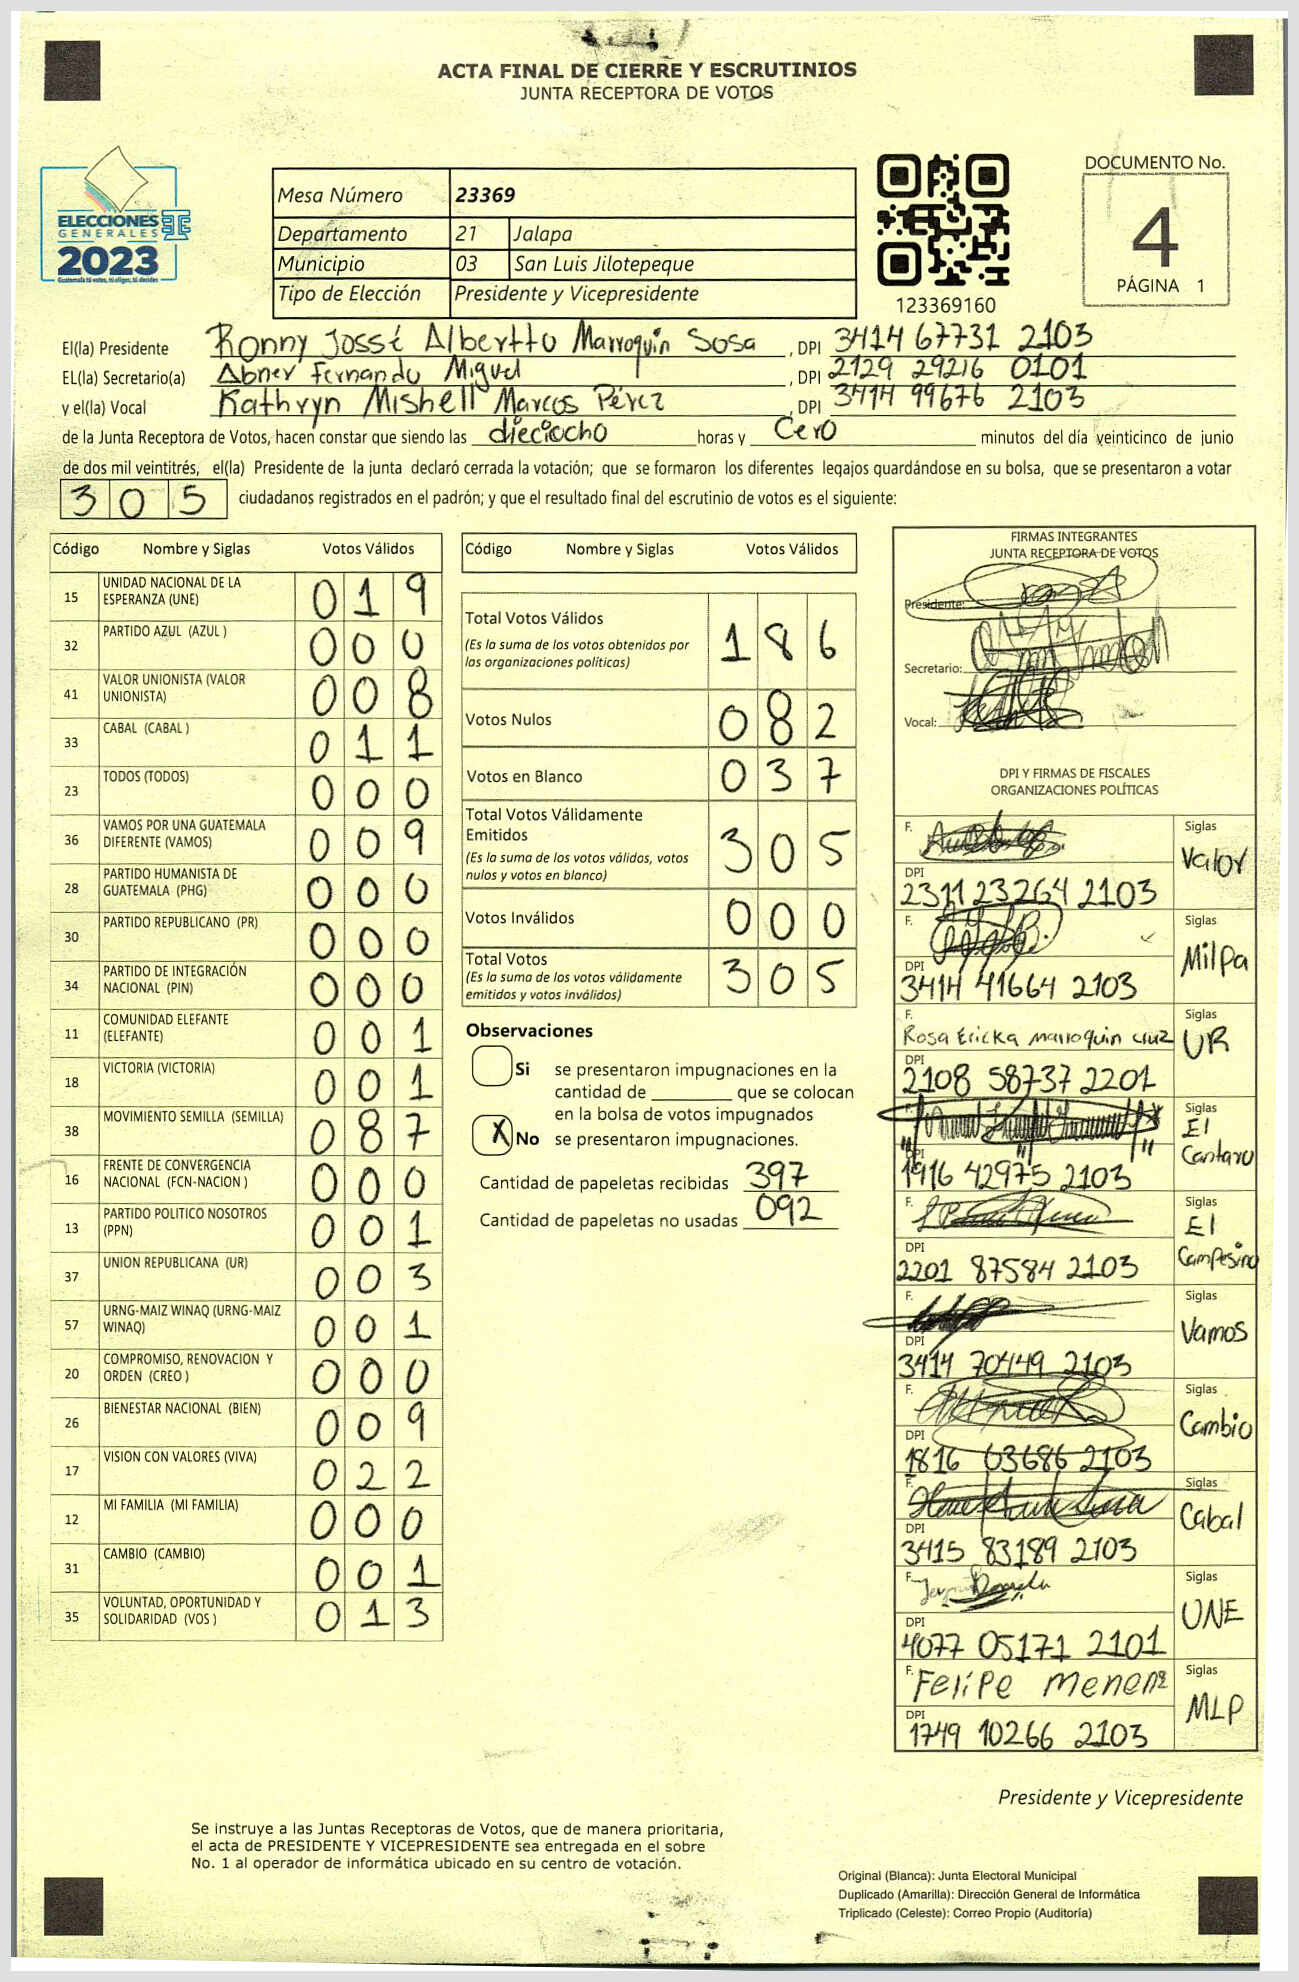 ACTA FINAL DE CIERRE Y ESCRUTINIOS
JUNTA RECEPTORA DE VOTOS
ELECCIONES
GENERALES
2023
Guatemala tú votas, tú eliges, tú decides
Mesa Número 23369
Departamento 21 Jalapa
Municipio 03 San Luis Jilotepeque
Tipo de Elección Presidente y Vicepresidente
123369160
DOCUMENTO No.
4
PÁGINA 1
El(la) Presidente Ronny Jossé Albertto Marroquin Sosa , DPI 3414 67731 2103
EL(la) Secretario(a) Abner Fernando Miguel , DPI 2129 29216 0101
y el(la) Vocal Kathryn Mishell Marcos Pérez , DPI 3414 99676 2103
de la Junta Receptora de Votos, hacen constar que siendo las dieciocho horas y Cero minutos del día veinticinco de junio
de dos mil veintitrés, el(la) Presidente de la junta declaró cerrada la votación; que se formaron los diferentes legajos guardándose en su bolsa, que se presentaron a votar
305 ciudadanos registrados en el padrón; y que el resultado final del escrutinio de votos es el siguiente:
Código Nombre y Siglas Votos Válidos
15 UNIDAD NACIONAL DE LA ESPERANZA (UNE) 019
32 PARTIDO AZUL (AZUL ) 000
41 VALOR UNIONISTA (VALOR UNIONISTA) 008
33 CABAL (CABAL ) 011
23 TODOS (TODOS) 000
36 VAMOS POR UNA GUATEMALA DIFERENTE (VAMOS) 009
28 PARTIDO HUMANISTA DE GUATEMALA (PHG) 000
30 PARTIDO REPUBLICANO (PR) 000
34 PARTIDO DE INTEGRACIÓN NACIONAL (PIN) 000
11 COMUNIDAD ELEFANTE (ELEFANTE) 001
18 VICTORIA (VICTORIA) 001
38 MOVIMIENTO SEMILLA (SEMILLA) 087
16 FRENTE DE CONVERGENCIA NACIONAL (FCN-NACION ) 000
13 PARTIDO POLITICO NOSOTROS (PPN) 001
37 UNION REPUBLICANA (UR) 003
57 URNG-MAIZ WINAQ (URNG-MAIZ WINAQ) 001
20 COMPROMISO, RENOVACION Y ORDEN (CREO ) 000
26 BIENESTAR NACIONAL (BIEN) 009
17 VISION CON VALORES (VIVA) 022
12 MI FAMILIA (MI FAMILIA) 000
31 CAMBIO (CAMBIO) 001
35 VOLUNTAD, OPORTUNIDAD Y SOLIDARIDAD (VOS ) 013
Código Nombre y Siglas Votos Válidos
Total Votos Válidos 186
(Es la suma de los votos obtenidos por
las organizaciones políticas)
Votos Nulos 082
Votos en Blanco 037
Total Votos Válidamente
Emitidos 305
(Es la suma de los votos válidos, votos
nulos y votos en blanco)
Votos Inválidos 000
Total Votos 305
(Es la suma de los votos válidamente
emitidos y votos inválidos)
Observaciones
Si se presentaron impugnaciones en la
cantidad de ________ que se colocan
en la bolsa de votos impugnados
X No se presentaron impugnaciones.
Cantidad de papeletas recibidas 397
Cantidad de papeletas no usadas 092
FIRMAS INTEGRANTES
JUNTA RECEPTORA DE VOTOS
Presidente:
Secretario:
Vocal:
DPI Y FIRMAS DE FISCALES
ORGANIZACIONES POLÍTICAS
F. Siglas Valor
DPI 2311 23264 2103
F. Siglas Milpa
DPI 3414 41664 2103
F. Rosa Ericka marroquin cruz Siglas UR
DPI 2108 58737 2201
F. Siglas El Cantaro
DPI 1916 42975 2103
F. Siglas El Campesino
DPI 2201 87584 2103
F. Siglas Vamos
DPI 3414 70449 2103
F. Siglas Cambio
DPI 1816 03686 2103
F. Siglas Cabal
DPI 3415 83189 2103
F. Siglas UNE
DPI 4077 05171 2101
F. Felipe Siglas MLP
DPI 1749 10266 2103
Presidente y Vicepresidente
Se instruye a las Juntas Receptoras de Votos, que de manera prioritaria,
el acta de PRESIDENTE Y VICEPRESIDENTE sea entregada en el sobre
No. 1 al operador de informática ubicado en su centro de votación.
Original (Blanca): Junta Electoral Municipal
Duplicado (Amarilla): Dirección General de Informática
Triplicado (Celeste): Correo Propio (Auditoría)